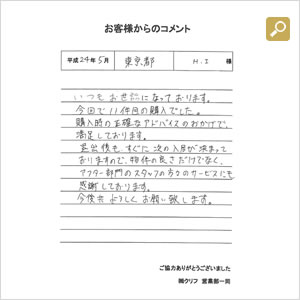 お客様からのコメント
平成24年5月 東京都 H.I 様
いつもお世話になっております。
今回で11件目の購入でした。
購入時の正確なアドバイスのおかげで、
満足しております。
退出後も、すぐに次の入居が決まって
おりますので、物件の良さだけでなく、
アフター部門のスタッフの方々のサービスにも
感謝しております。
今後共よろしくお願い致します。
ご協力ありがとうございました
㈱クリフ 営業部一同